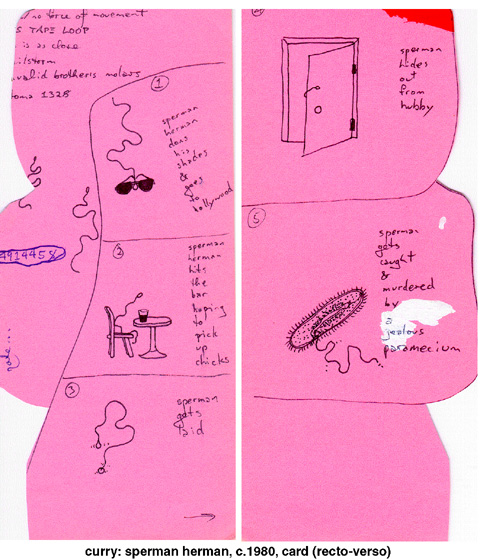 no force of movement
S TAPE LOOP
is as close
valid brothers molars
1328
4914458
①
sperman
herman
dons
his
shades
&
goes
to
hollywood
②
sperman
herman
hits
the
bar
hoping
to
pick
up
chicks
③
sperman
gets
laid
sperman
hides
out
from
hubby
⑤
sperman
gets
caught
&
murdered
by
a
jealous
paramecium
curry: sperman herman, c.1980, card (recto-verso)